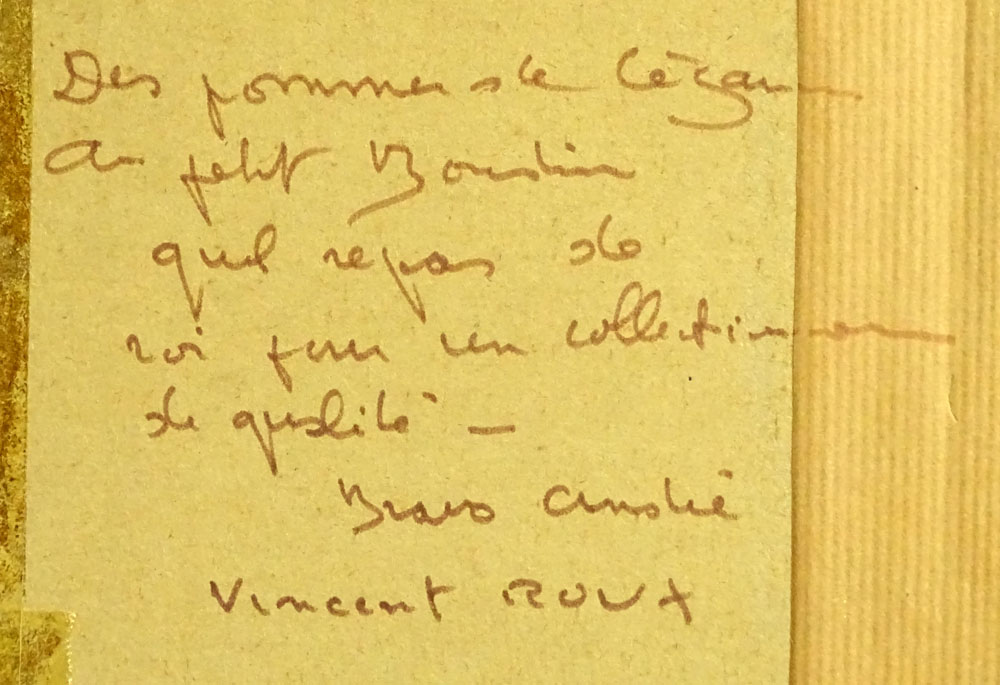 Des pommes de Cézanne
au petit Boudin
quel repas de
roi pour un collectionneur
de qualité —
Bravo André
Vincent ROUX